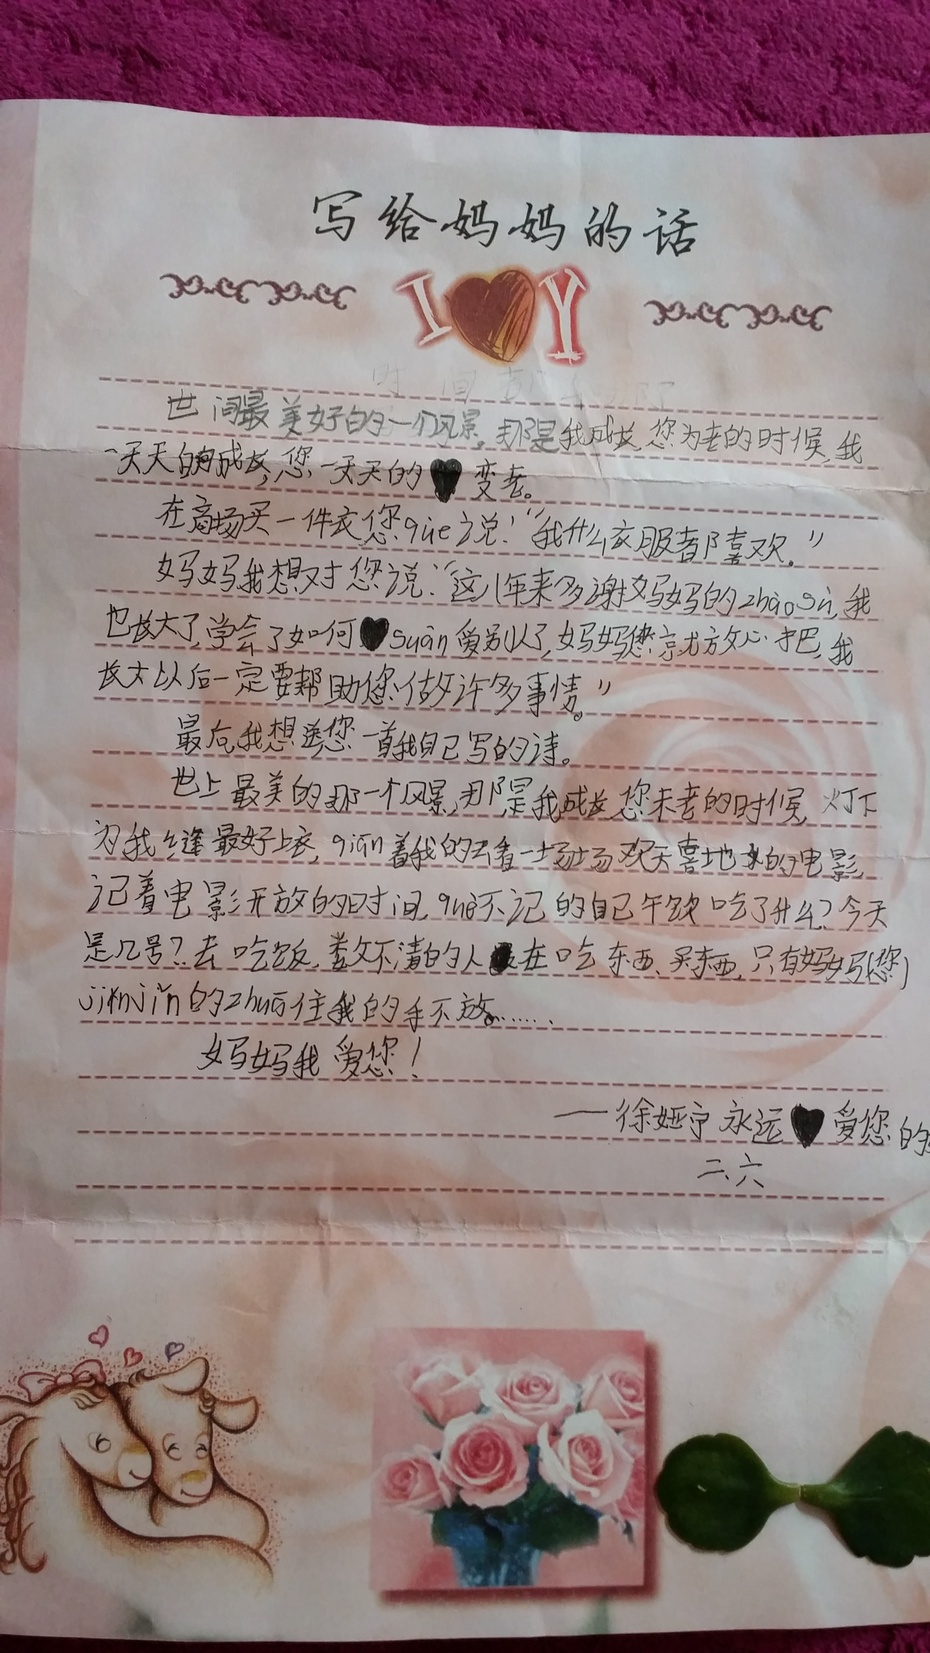 写给妈妈的话
I Y
世间最美好的一个风景，那是我成长，您为老的时候，我
一天天的成长，您一天天的变老。
在商场买一件衣您què说：“我什么衣服都喜欢。”
妈妈我想对您说：“这几年来多谢妈妈的zhàogù，我
也长大了，学会了如何suàn爱别人了，妈妈您就放心才吧，我
长大以后一定要帮助您做许多事情。”
最后，我想送您一首我自己写的诗。
世上最美的那一个风景，那是我成长您未老的时候，灯下
为我缝最好上衣，qiān着我的去看一场场欢天喜地的电影，
记着电影开放的时间，què不记的自己午饭吃了什么？今天
是几号？去吃饭，数不清的人在吃东西、买东西，只有妈妈(您)
jǐnjǐn的zhuā住我的手不放。……
妈妈我爱您！
——徐娅宁永远爱您的
二、六